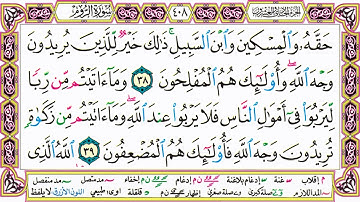 سورة الروم ٤٠٨
حَقَّهُۥ وَٱلْمِسْكِينَ وَٱبْنَ ٱلسَّبِيلِ ۚ ذَٰلِكَ خَيْرٌ لِّلَّذِينَ يُرِيدُونَ
وَجْهَ ٱللَّهِ ۖ وَأُو۟لَٰٓئِكَ هُمُ ٱلْمُفْلِحُونَ ٣٨ وَمَآ ءَاتَيْتُم مِّن رِّبًا
لِّيَرْبُوَا۟ فِىٓ أَمْوَٰلِ ٱلنَّاسِ فَلَا يَرْبُوا۟ عِندَ ٱللَّهِ ۖ وَمَآ ءَاتَيْتُم مِّن زَكَوٰةٍ
تُرِيدُونَ وَجْهَ ٱللَّهِ فَأُو۟لَٰٓئِكَ هُمُ ٱلْمُضْعِفُونَ ٣٩ ٱللَّهُ ٱلَّذِى